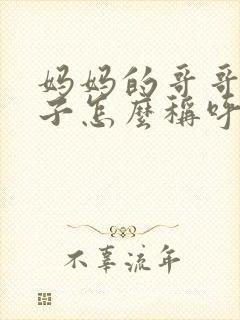 妈妈的哥哥
子怎麽稱呼
不辜流年